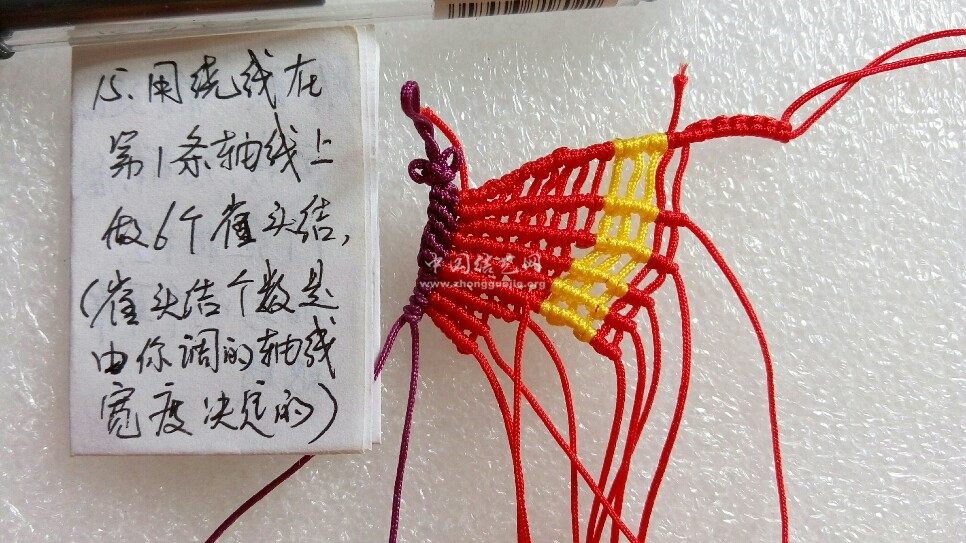 15、用绕线在
第1条轴线上
做6个雀头结，
（雀头结个数是
由你调的轴线
宽度决定的）
中国结艺网
www.zhongguojie.org